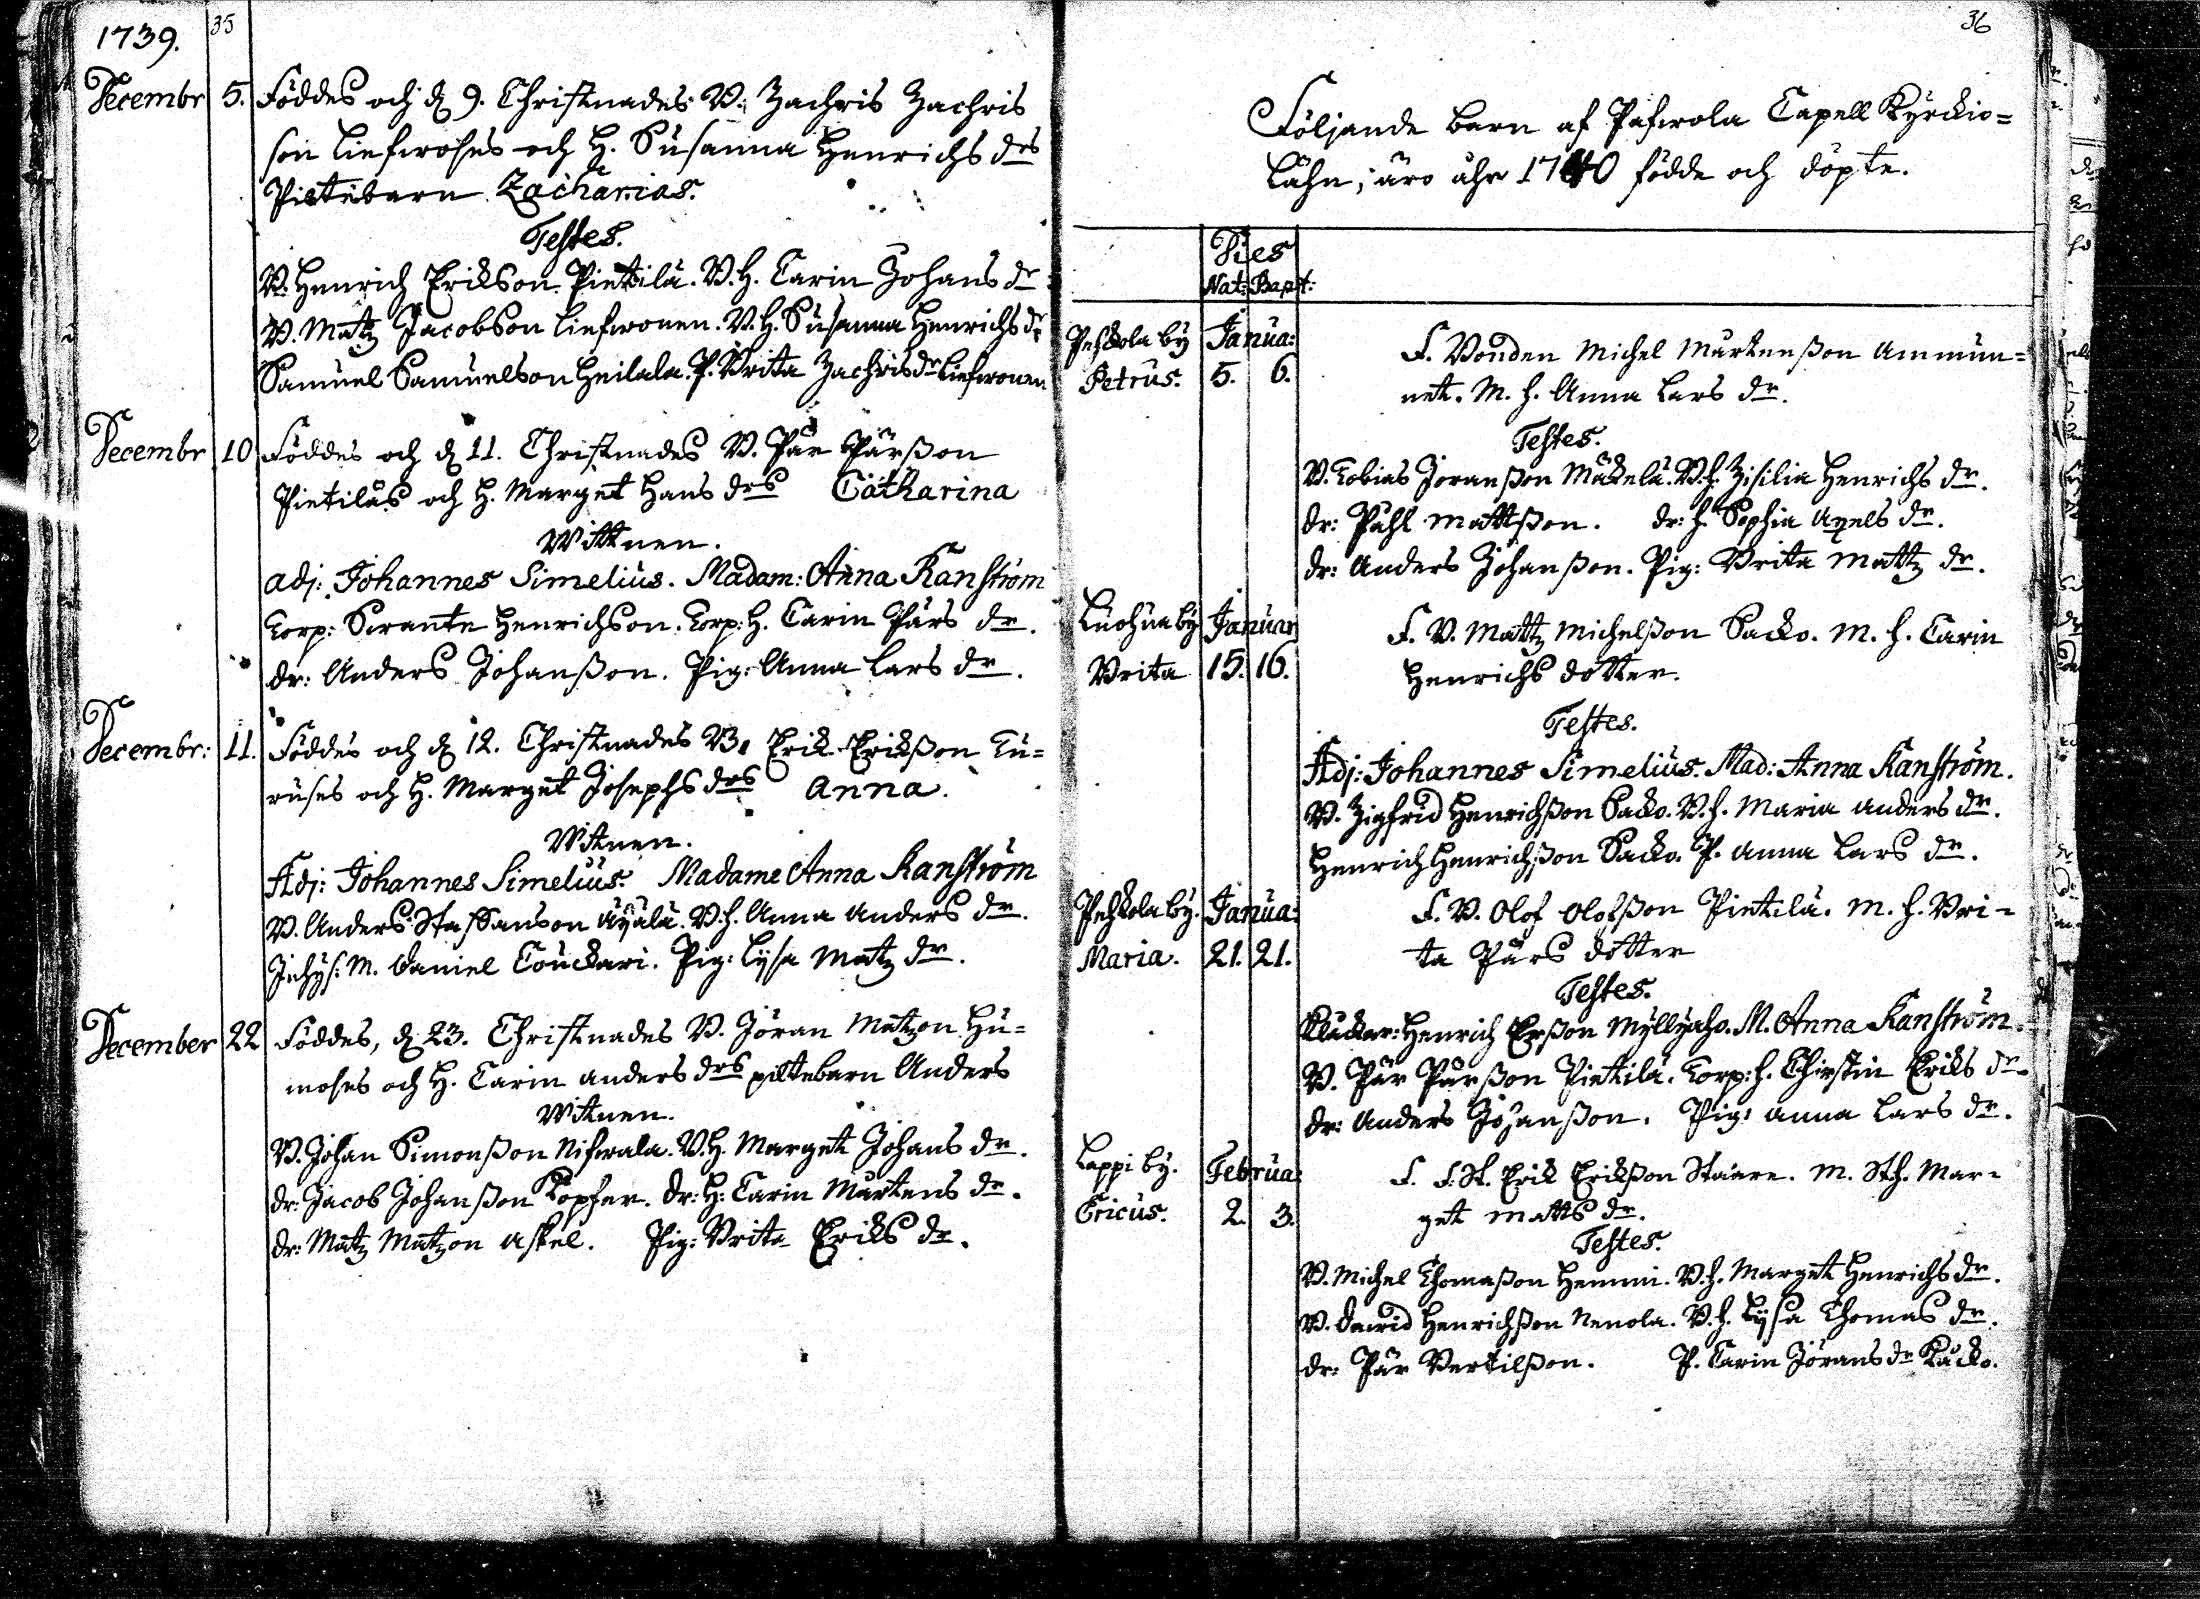 1739.
35
Decembr 5. Föddes och d 9. Christnades V. Zachris Zachris
son Liefwohns och H. Susanna Henrichs drs
Piltebarn Zacharias.
Testes.
V. Henrich Erikson Pietilä. V. H. Carin Johans dr
V. Matz Jacobson Liefwonen. V. H. Susanna Henrichs dr
Samuel Samuelson Heilala. P. Brita Zachris dr Liefwonen
Decembr 10 Föddes och d 11. Christnades V. Pär Pärsson
Pietiläs och H. Marget Hans drs Catharina
Wittnen.
adj: Johannes Simelius. Madam: Anna Kanström
Corp: Swante Henrichson. Corp: H. Carin Pärs dr.
dr: Anders Johansson. Pig: Anna Lars dr.
Decembr: 11. Föddes och d 12. Christnades B. Erik Eriksson Ku=
ruses och H. Marget Josephs drs Anna.
Witnen.
Adj: Johannes Simelius. Madame Anna Kanström
V. Anders Staffanson Äyälä. V. h. Anna Anders dr.
M. Daniel Couckari. Pig: Lysa Matz dr.
December 22 Föddes, d 23. Christnades V. Jöran Matzon Hu=
mohs och H. Carin Anders drs piltebarn Anders
Witnen.
V. Johan Simonsson Nifwala. V. H. Marget Johans dr.
dr: Jacob Johansson Topfer. dr: H: Carin Mårtens dr.
dr: Matz Matzon Askel. Pig: Brita Eriks dr.
36
Följande barn af Pafwola Capell Kyrckio=
Lähn, äro åhr 1740 födde och döpte.
Dies
Nat: Bapt:
Pehkola by Janua: F. Bonden Michel Mårtensson Ammun=
Petrus. 5. 6. net. M. h. Anna Lars dr.
Testes.
V. Tobias Jöransson Mäkelä. V. h. Zisilia Henrichs dr.
dr: Påhl Mattsson. dr: h. Sophia Axels dr.
dr: Anders Johansson. Pig: Brita Mattz dr.
Luohua by Januar F. V. Mattz Michelsson Sacko. M. h. Carin
Brita 15. 16. Henrichs dotter.
Testes.
Adj: Johannes Simelius. Mad: Anna Kanström.
V. Zigfrid Henrichsson Sacko. V. h. Maria Anders dr.
Henrich Henrichsson Sacko. P. Anna Lars dr.
Pehkola by. Janua: F. V. Olof Olofsson Pietilä. M. h. Bri-
Maria. 21. 21. ta Pärs dotter
Testes.
Klåckar: Henrich Ersson Myllyaho. M. Anna Kanström.
V. Pär Pärsson Pietilä. Corp: h. Chirstin Eriks dr.
dr: Anders Johansson. Pig: Anna Lars dr.
Lappi by. Februa: F. S. St. Erik Eriksson Staare. M. St. h. Mar-
Ericus. 2. 3. get Matts dr.
Testes.
V. Michel Thomasson Hemmi. V. h. Marget Henrichs dr.
V. David Henrichsson Nenola. V. h. Lysa Thomas dr.
dr: Pär Bertilsson. P. Carin Jörans dr Käcko.